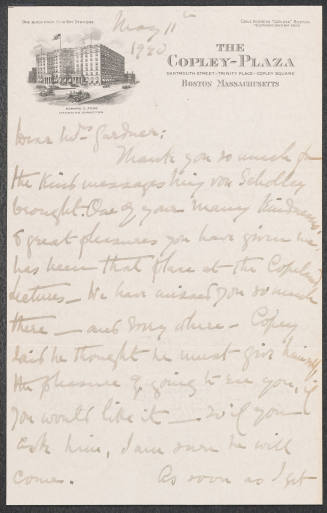 May 11th
1920
THE
COPLEY-PLAZA
DARTMOUTH STREET-TRINITY PLACE-COPLEY SQUARE
BOSTON MASSACHUSETTS
EDWARD C. FOGG
MANAGING DIRECTOR
Dear Mrs Gardner:
Thank you so much for
the kind messages
brought. One of your many kindnesses
& great pleasures you have given me,
has been that place at the Copeland
Lectures — We have missed you so much
there — and every where — Copey
said he thought he must give himself
the pleasure of going to see you, if
you would like it — will you
ask him, I am sure he will
come. As soon as I get